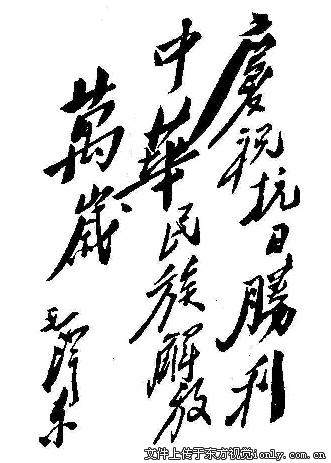 慶祝抗日勝利
中華民族解放
萬歲
毛澤东
文件上传于东方视觉ionly.com.cn